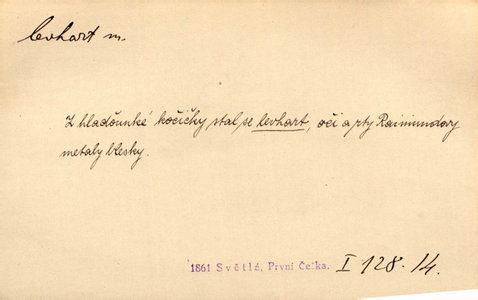 levhart m.
Z hlaďounké kočičky stal se levhart, oči a rty Raimundovy
metaly blesky.
1861 Světlá, První Češka. I 128. 14.